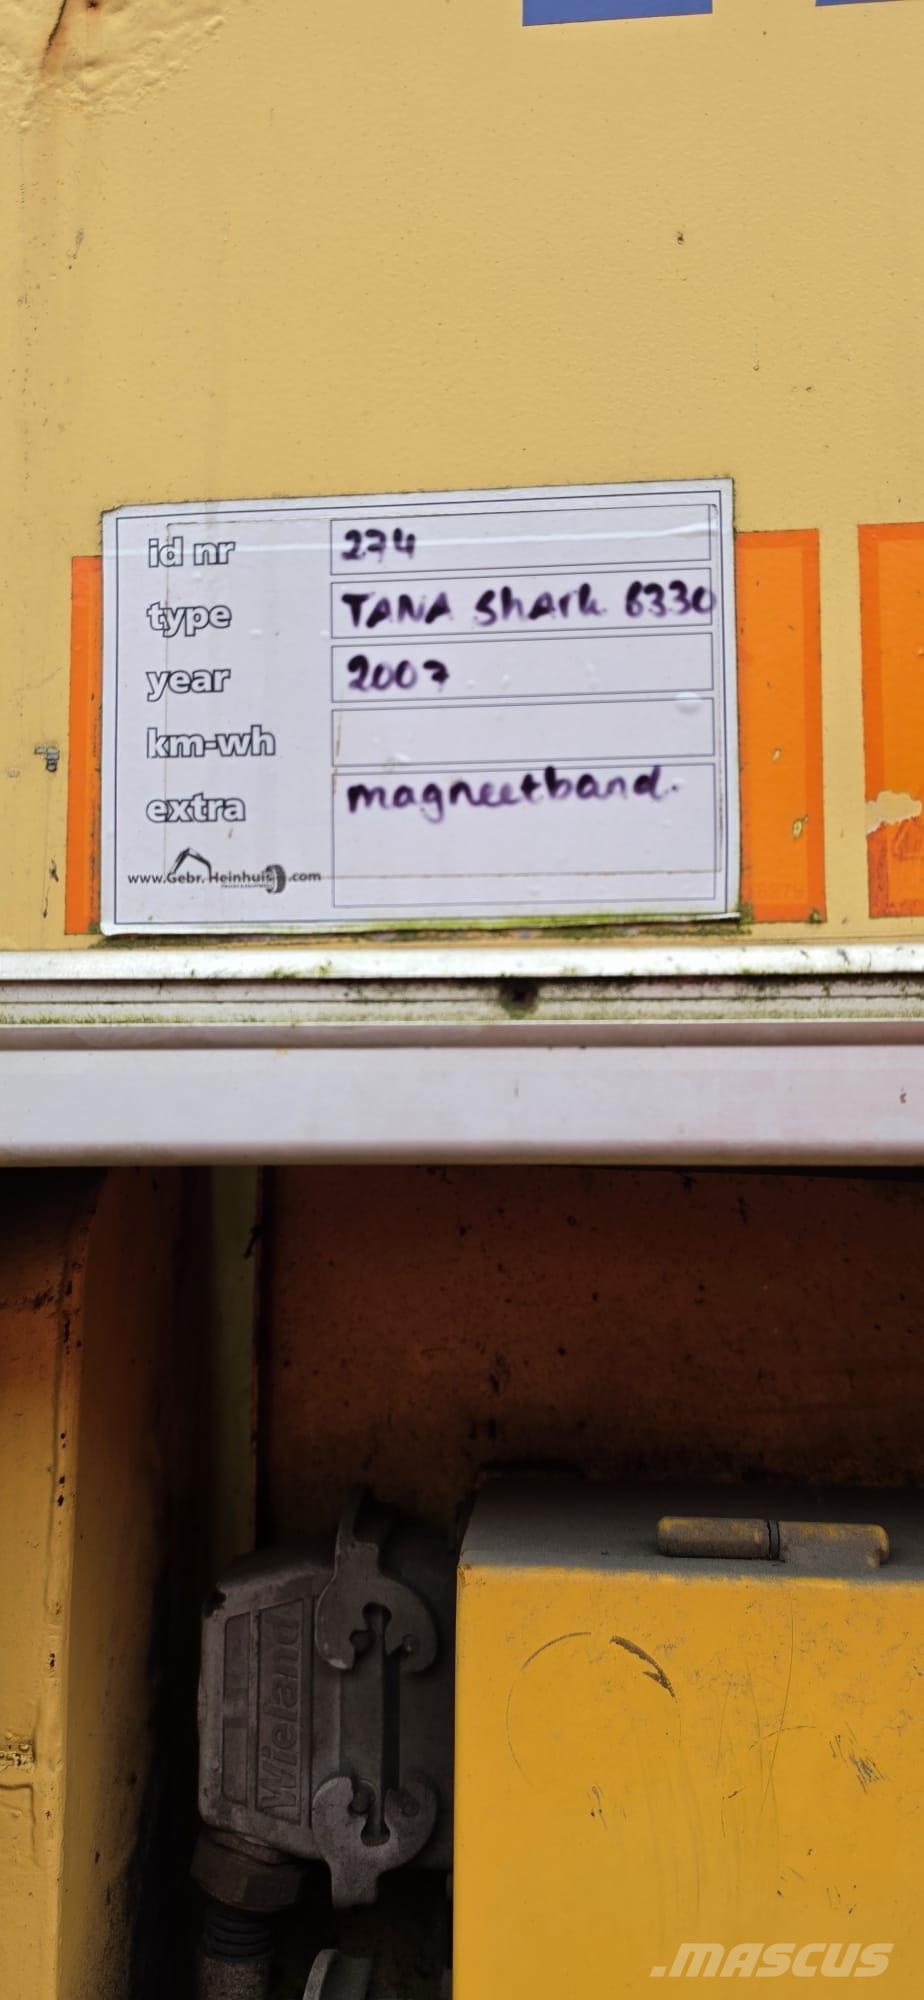 id nr 274
type TANA Shark 6330
year 2007
km-wh
extra magneetband.
www.Gebr.Heinhuis.com
Wieland
.MASCUS